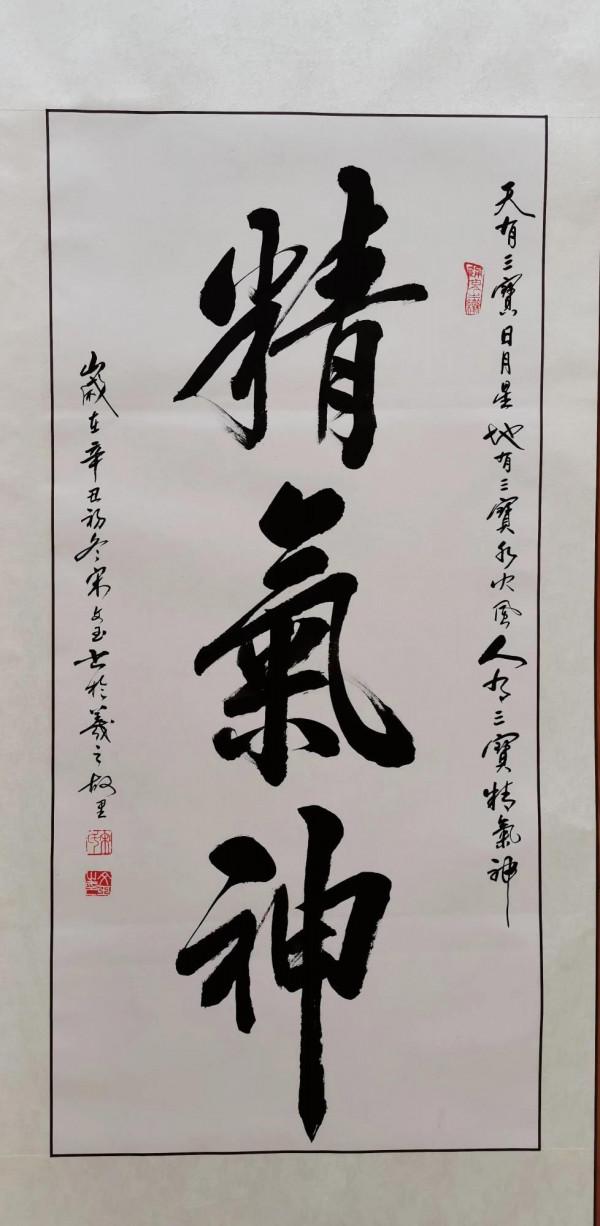 天有三寶日月星地有三寶水火風人有三寶精氣神
精氣神
歲在辛丑初冬宋文玉書於羲之故里